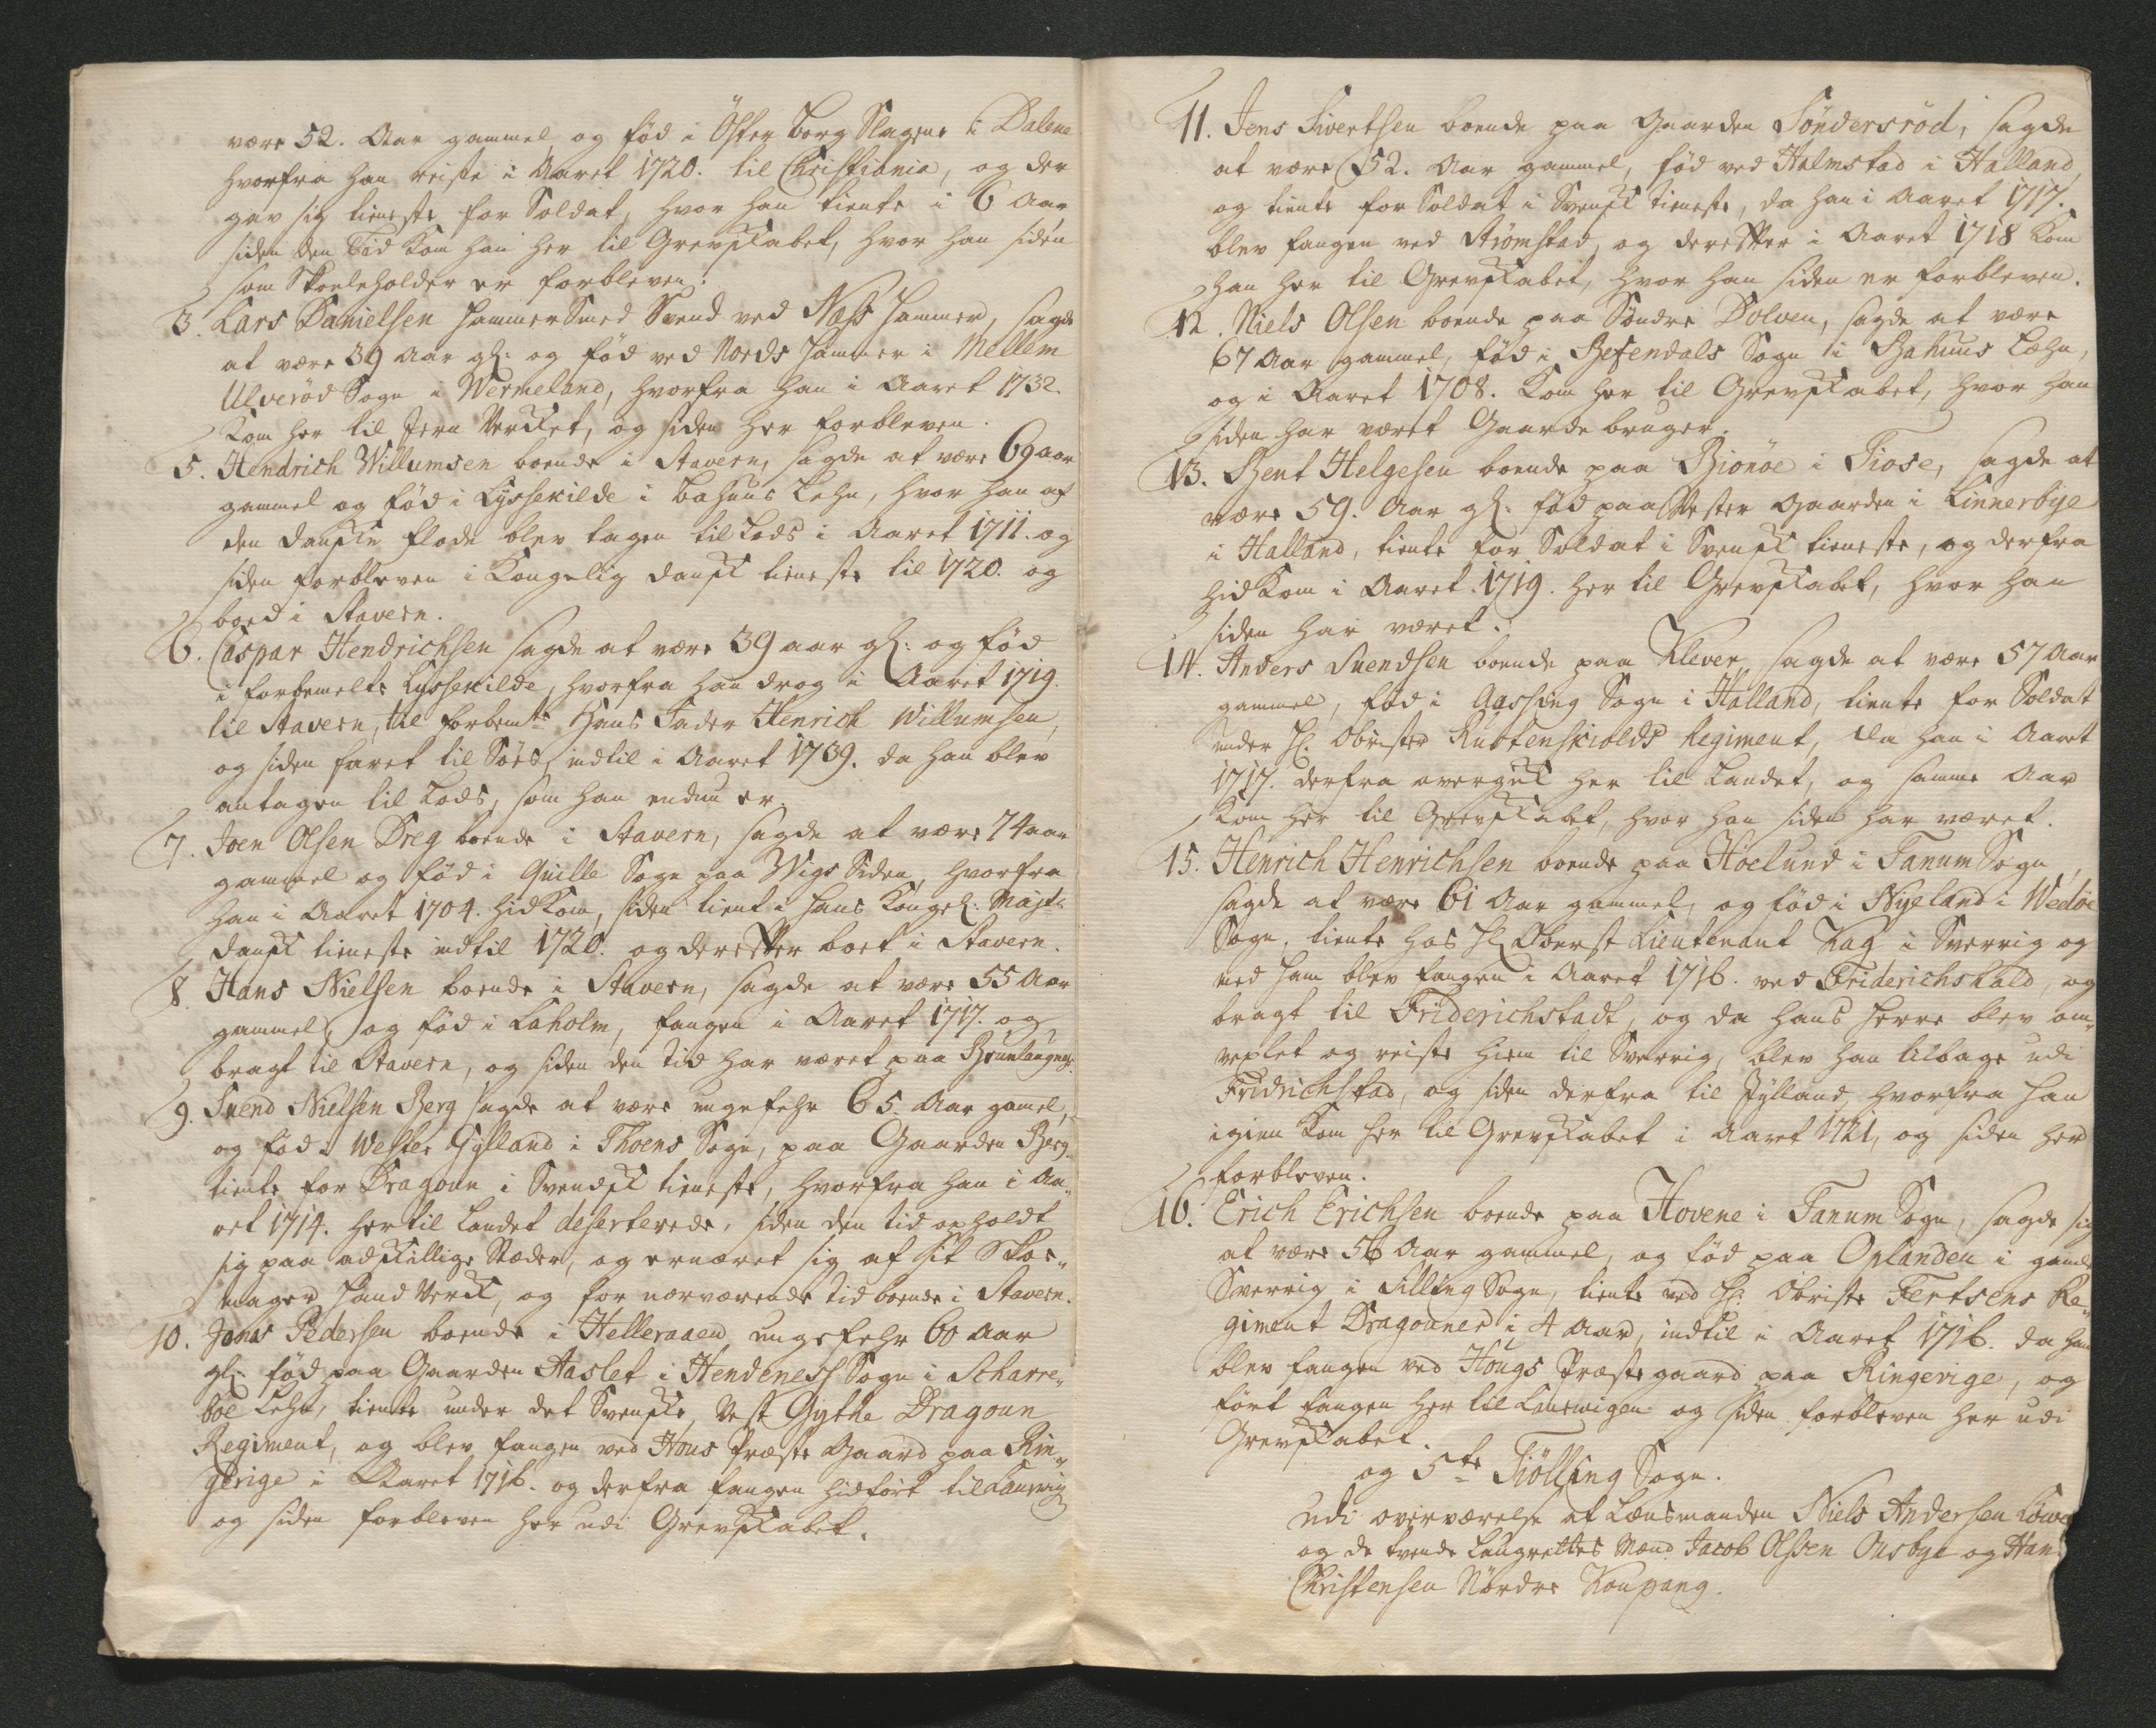 være 52. Aar gammel og fød i Öster borg Slagene i Dalene
hvorfra han reiste i Aaret 1720. til Christiania, og der
gav sig tieneste for Soldat, hvor han tiente i 6 Aar
siden den Tid kom han her til Grevskabet, hvor han siden
som Skoeleholder er forbleven.
3. Lars Danielsen Hammer Smed Svend ved Næss Hammer, sagde
at være 39 Aar gl: og fød ved Nords Hammer i Mellem
Ulverød Sogn i Wermeland, hvorfra han i Aaret 1732.
kom her til Jern Verket, og siden her forbleven.
5. Hendrich Willumsen boende i Stavern, sagde at være 69 aar
gammel og fød i Lyssekilde i Bahuus Lehn, hvor han af
den danske flode blev tagen til Lods i Aaret 1711. og
siden forbleven i Kongelig dansk tieneste til 1720. og
boed i Stavern.
6. Caspar Hendrichsen sagde at være 39 aar gl: og fød
i forbemelte Lyssekilde, hvorfra han drog i Aaret 1719.
til Stavern, til forbemte Hans Fader Henrich Willumsen,
og siden faret til Søes, indtil i Aaret 1739. da han blev
antagen til Lods, som han endnu er.
7. Joen Olsen Dreg boende i Stavern, sagde at være 74 aar
gammel og fød i Quille Sogn paa Wigs Siden, hvorfra
han i Aaret 1704. hidkom, siden tient i Hans Kongel: Mayts
dansk tieneste indtil 1720. og derefter boet i Stavern.
8. Hans Nielsen boende i Stavern, sagde at være 55 Aar
gammel, og fød i Laholm, fangen i Aaret 1717. og
bragt til Stavern, og siden den tid har været paa Brunlaugnes.
9. Svend Nielsen Berg sagde at være ungefehr 65. Aar gamel,
og fød i Wester Gylland i Thoens Sogn, paa Gaarden Berg.
tiente for Dragoun i Svendsk tieneste, hvorfra han i Aa„
ret 1714. her til Landet deserterede, siden den tid opholdt
sig paa adskillige Stæder, og ernæret sig af sit Skoe„
mager Handverk, og for nærværende tid boende i Stavern.
10. Jonas Pedersen boende i Helleraaen ungefehr 60 Aar
gl: fød paa Gaarden Haslet i Hendeness Sogn i Scharre„
boe Lehn, tiente under det Svenske Vest Gythe Dragoun
Regiment, og blev fangen ved Hous Præste Gaard paa Rin„
gerige i Aaret 1716. og derfra fangen hidført til Laurwig
og siden forbleven her udi Grevskabet.
11. Jens Sivertsen boende paa Gaarden Söndersröd, sagde
at være 52. Aar gammel, fød ved Halmstad i Halland,
og tiente for Soldat i Svensk tieneste, da han i Aaret 1717.
blev fangen ved Strömstad, og derefter i Aaret 1718 kom
han her til Grevskabet, hvor han siden er forbleven.
12. Niels Olsen boende paa Søndre Dolven, sagde at være
67 Aar gammel, fød i Refendals Sogn i Bahuus Læhn,
og i Aaret 1708. kom her til Grevskabet, hvor han
siden har været Gaardebruger.
13. Bent Helgesen boende paa Bionöe i Tiose, sagde at
være 59. Aar gl: fød paa Vester Gaarden i Linnerbye
i Halland, tiente for Soldat i Svensk tieneste, og derfra
hidkom i Aaret 1719. her til Grevskabet, hvor han
siden har været.
14. Anders Svendsen boende paa Klever, sagde at være 57 Aar
gammel, fød i Aassing Sogn i Halland, tiente for Soldat
under H: Obrister Rustenskiolds Regiment, da han i Aaret
1717. derfra overgik her til Landet, og samme Aar
kom her til Grevskabet, hvor han siden har været.
15. Henrich Henrichsen boende paa Höelund i Tanum Sogn,
sagde at være 61 Aar gammel, og fød i Nyeland i Wedöe
Sogn, tiente hos H: Oberst Lieutenant Kag i Sverrig og
med ham blev fangen i Aaret 1716. ved Friderichshald, og
bragt til Friderichstadt, og da hans Herre blev om„
vexlet og reiste hiem til Sverrig, blev han tilbage udi
Fridrichstad, og siden derfra til Jylland, hvorfra han
igien kom her til Grevskabet i Aaret 1721, og siden her
forbleven.
16. Erich Erichsen boende paa Hovene i Tanum Sogn, sagde sig
at være 56 Aar gammel, og fød paa Oplanden i gamle
Sverrig i Silling Sogn, tiente ved H: Obriste Fertsens Re„
giment Dragouner i 4 Aar, indtil i Aaret 1716. da han
blev fangen ved Hougs Præstegaard paa Ringerige, og
ført fangen her til Laurwigen og siden forbleven her udi
Grevskabet.
og 5te Tiölling Sogn.
udi overværelse af Lænsmanden Niels Andersen Löwe
og de tvende Laugrettes Mænd Jacob Olssen Onsbye og Han
Christensen Nördre Kaupang.